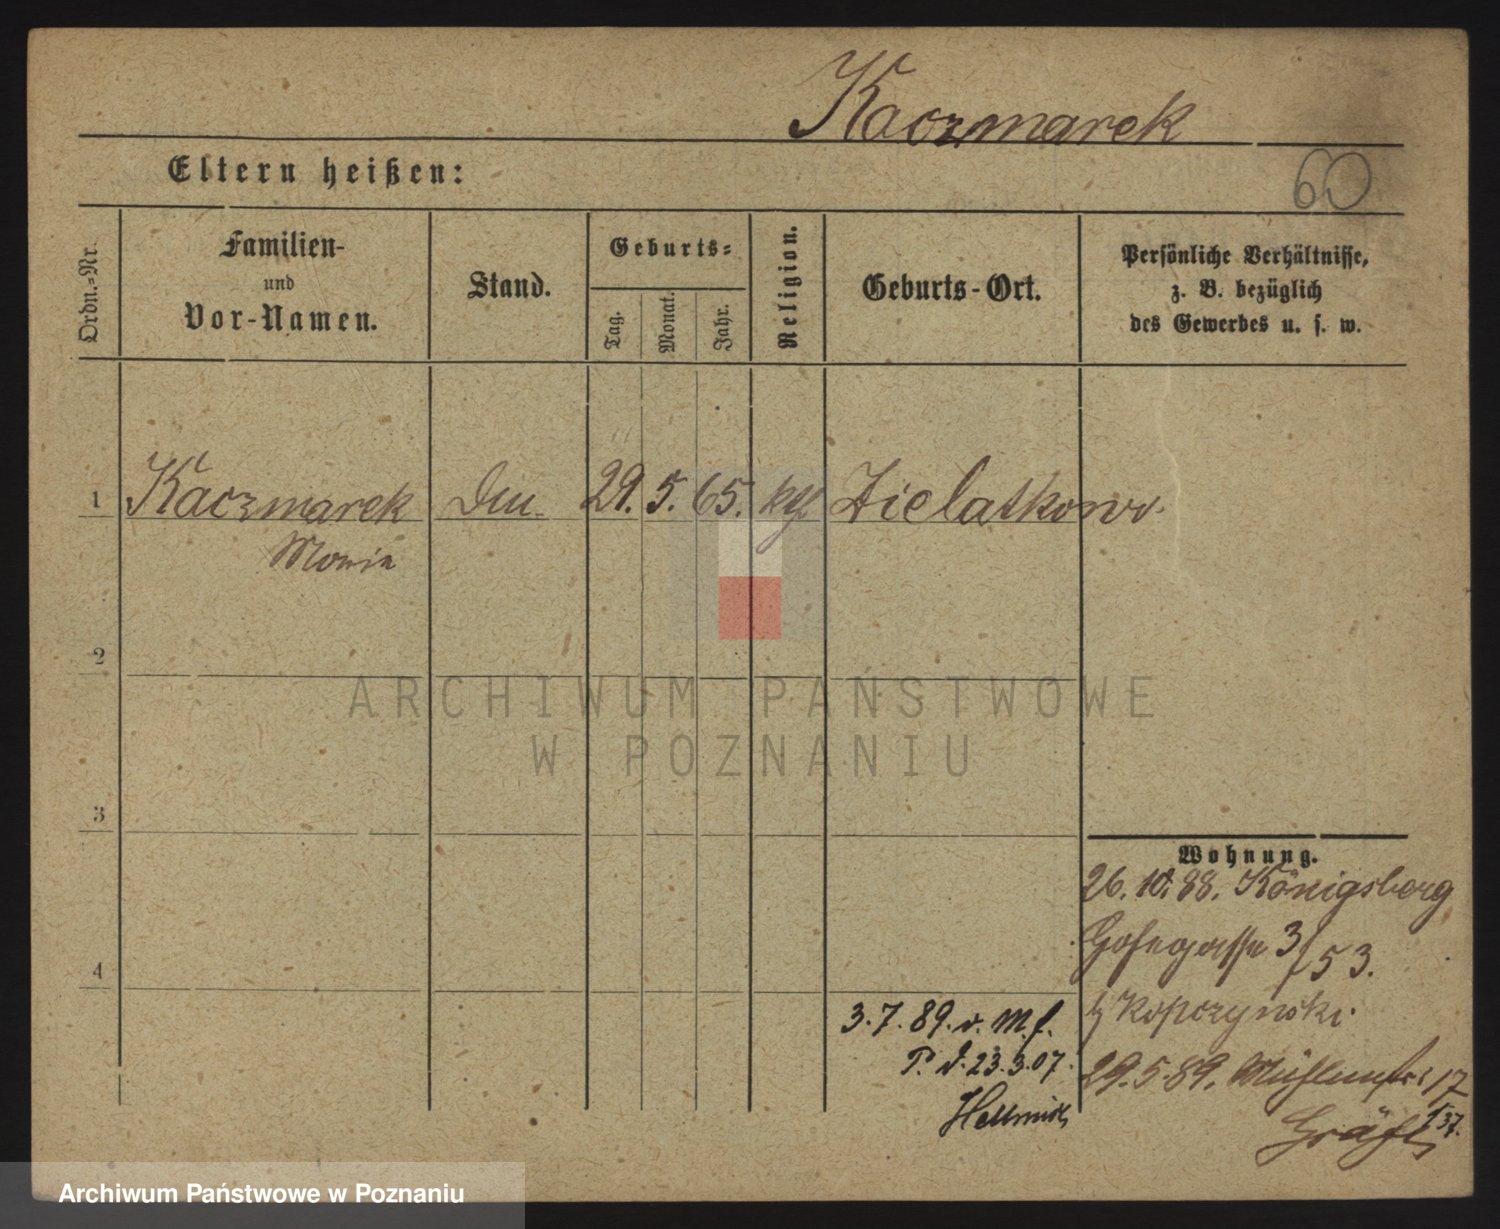 Kaczmarek
60
Eltern heißen:
Ordn.-Nr.
Familien-
und
Vor-Namen.
Stand.
Geburts-
Tag.
Monat.
Jahr.
Religion.
Geburts-Ort.
Persönliche Verhältnisse,
z. B. bezüglich
des Gewerbes u. s. w.
1 Kaczmarek 29. 5. 65. kth Zielatkowo
Maria
2
ARCHIWUM PAŃSTWOWE
W POZNANIU
3
Wohnung.
26. 10. 88. Königsberg
3/53.
4
Kopczynski.
3. 7. 89. v. M. f.
P. d. 23. 3. 07.
29. 5. 89. 17
137.
Archiwum Państwowe w Poznaniu